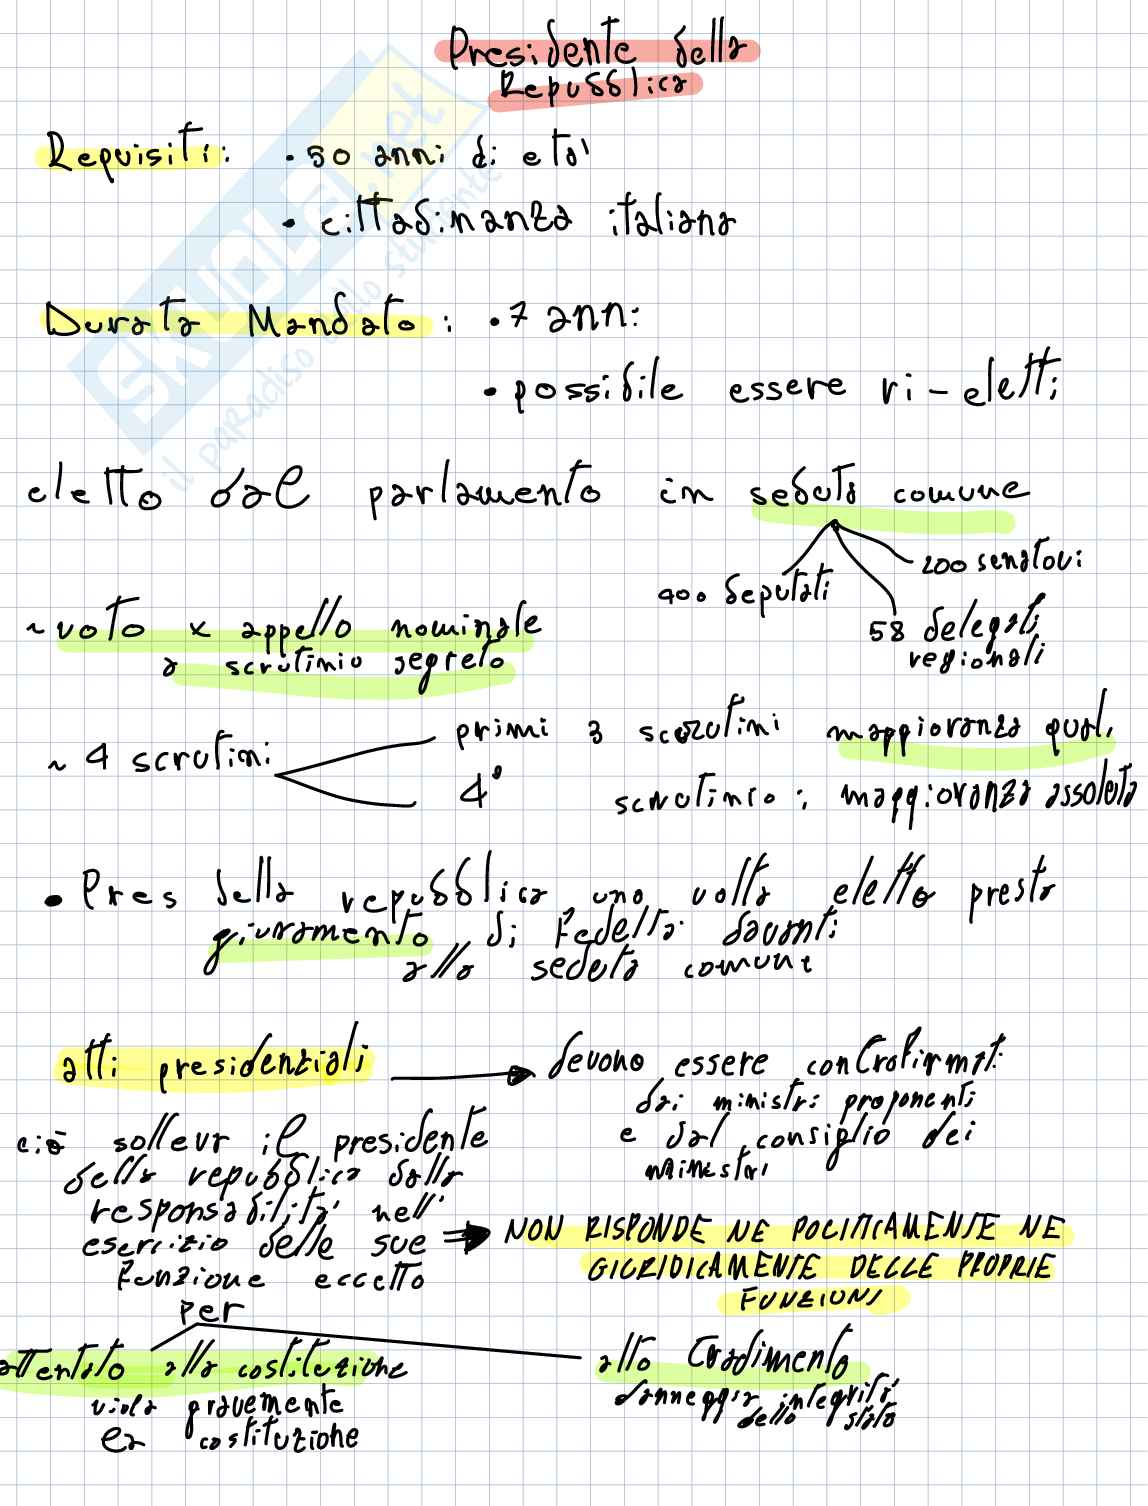 Presidente della
Repubblica
Requisiti: • 50 anni di eta'
• cittadinanza italiana
Durata Mandato: • 7 anni
• possibile essere ri-eletti
eletto dal parlamento in seduta comune
200 senatori
400 deputati
58 delegati
regionali
~ voto x appello nominale
a scrutinio segreto
~ 4 scrutini
primi 3 scrutini maggioranza qual.
4° scrutinio: maggioranza assoluta
• Pres della repubblica una volta eletto presta
giuramento di fedelta' davanti
alla seduta comune
atti presidenziali → devono essere controfirmati
dai ministri proponenti
e dal consiglio dei
ministri
ciò solleva il presidente
della repubblica dalla
responsabilita' nell'
esercizio delle sue
funzione eccetto
per
⇒ NON RISPONDE NE POLITICAMENTE NE
GIURIDICAMENTE DELLE PROPRIE
FUNZIONI
attentato alla costituzione
viola gravemente
la costituzione
alto tradimento
danneggia integrita'
dello stato
SKUOLA.net
il paradiso dello studente